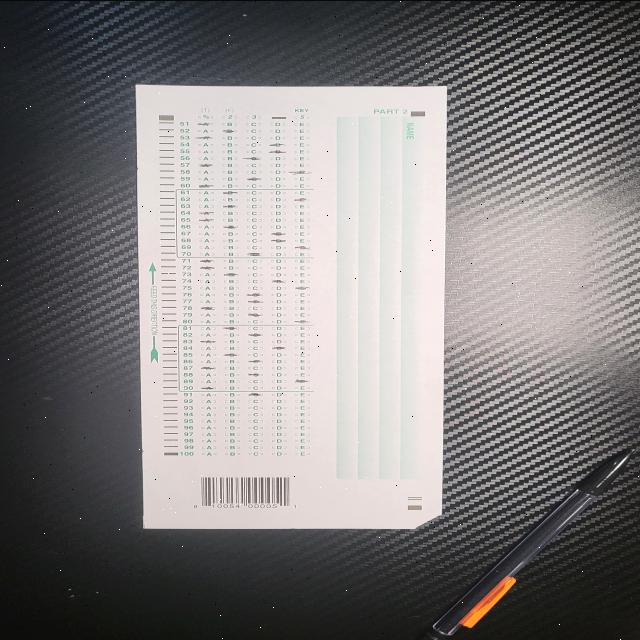 KEY
PART 2
NAME
51 A B C D E
52 A B C D E
53 A B C D E
54 A B C D E
55 A B C D E
56 A B C D E
57 A B C D E
58 A B C D E
59 A B C D E
60 A B C D E
61 A B C D E
62 A B C D E
63 A B C D E
64 A B C D E
65 A B C D E
66 A B C D E
67 A B C D E
68 A B C D E
69 A B C D E
70 A B C D E
71 A B C D E
72 A B C D E
73 A B C D E
74 A B C D E
75 A B C D E
76 A B C D E
77 A B C D E
78 A B C D E
79 A B C D E
80 A B C D E
81 A B C D E
82 A B C D E
83 A B C D E
84 A B C D E
85 A B C D E
86 A B C D E
87 A B C D E
88 A B C D E
89 A B C D E
90 A B C D E
91 A B C D E
92 A B C D E
93 A B C D E
94 A B C D E
95 A B C D E
96 A B C D E
97 A B C D E
98 A B C D E
99 A B C D E
100 A B C D E
FEED THIS DIRECTION
0 10054 00005 1